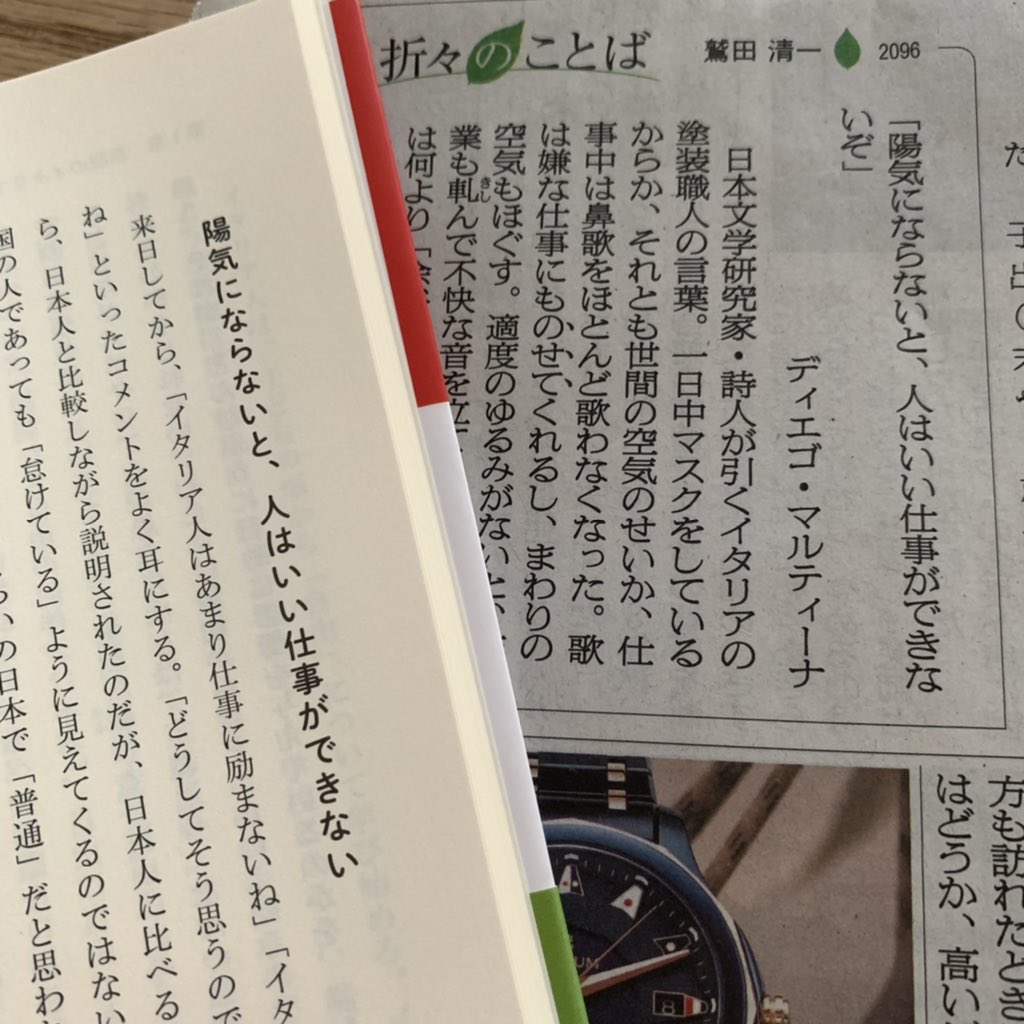 折々のことば
鷲田 清一
2096
「陽気にならないと、人はいい仕事ができな
いぞ」
ディエゴ・マルティーナ
日本文学研究家・詩人が引くイタリアの
塗装職人の言葉。一日中マスクをしている
からか、それとも世間の空気のせいか、仕
事中は鼻歌をほとんど歌わなくなった。歌
は嫌な仕事にものせてくれるし、まわりの
空気もほぐす。適度のゆるみがないと、
業も軋んで不快な音を立て
きし
は何より「
方も訪れたとき
はどうか、高い
8
陽気にならないと、人はいい仕事ができない
来日してから、「イタリア人はあまり仕事に励まないね」「イタ
ね」といったコメントをよく耳にする。「どうしてそう思うので
ら、日本人と比較しながら説明されたのだが、日本人に比べる
国の人であっても「怠けている」ように見えてくるのではない
の日本で「普通」だと思わ